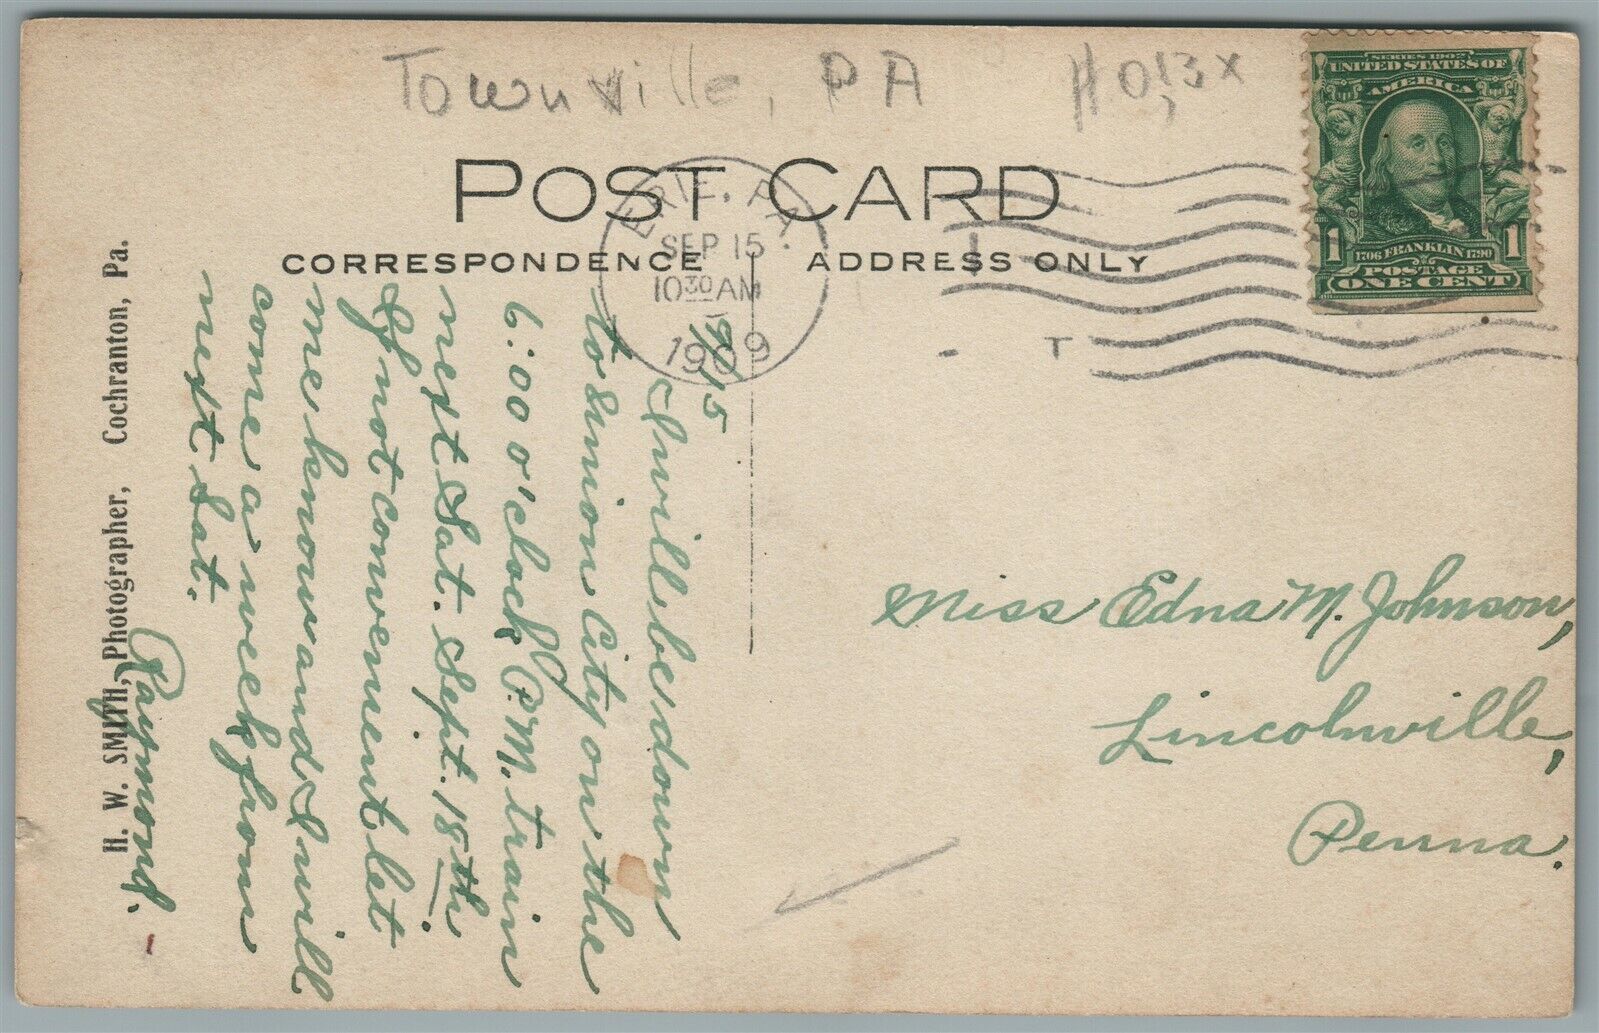 Townville, PA
SERIES 1902
UNITED STATES OF
AMERICA
1706 FRANKLIN 1790
1 1
POSTAGE
ONE CENT
POST CARD
CORRESPONDENCE
ADDRESS ONLY
ERIE, PA.
SEP 15
10 30 AM
1909
9/15
I will be down
to Union City on the
6:00 o'clock P.M. train
next Sat. Sept. 18th.
If not convenient let
me know and I will
come a week from
next Sat.
Raymond.
H. W. SMITH, Photographer, Cochranton, Pa.
Miss Edna M. Johnson,
Lincolnville,
Penna.